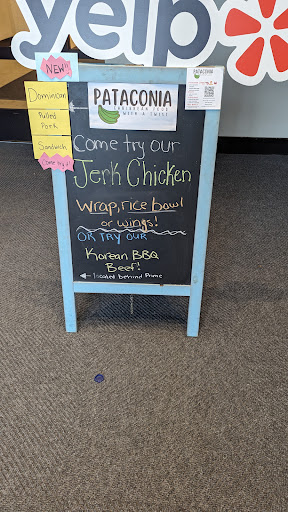 yelp
NEW!!
Dominican
Pulled
Pork
Sandwich
Come try!
PATACONIA
CARIBBEAN FOOD
WITH A TWIST
Come try our
Jerk Chicken
Wrap, rice bowl
or wings!
OR TRY OUR
Korean BBQ
Beef!
← located behind Prime